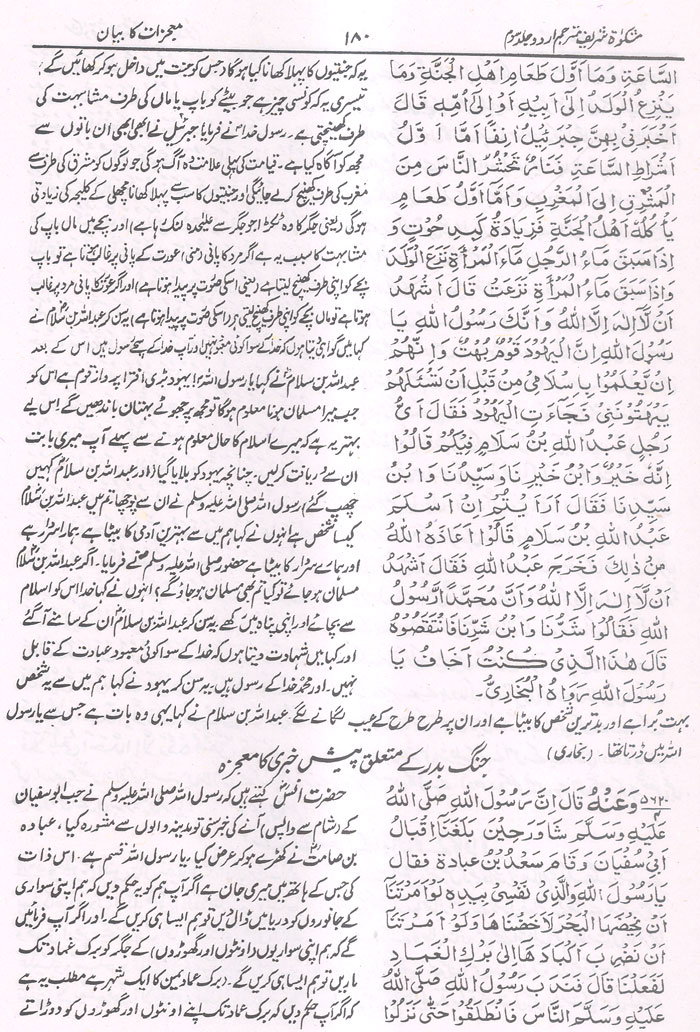 مشکوٰۃ شریف مترجم اردو جلد سوم
۱۸۰
معجزات کا بیان
السَّاعَةِ وَمَا اَوَّلُ طَعَامِ اَهْلِ الْجَنَّةِ وَمَا
يَنْزِعُ الْوَلَدَ اِلٰى اَبِيْهِ اَوْ اِلٰى اُمِّهٖ قَالَ
اَخْبَرَنِىْ بِهِنَّ جِبْرَئِيْلُ اٰنِفًا اَمَّا اَوَّلُ
اَشْرَاطِ السَّاعَةِ فَنَارٌ تَحْشُرُ النَّاسَ مِنَ
الْمَشْرِقِ اِلَى الْمَغْرِبِ وَاَمَّا اَوَّلُ طَعَامٍ
يَأْكُلُهٗ اَهْلُ الْجَنَّةِ فَزِيَادَةُ كَبِدِ حُوْتٍ وَ
اِذَا سَبَقَ مَاءُ الرَّجُلِ مَاءَ الْمَرْأَةِ نَزَعَ الْوَلَدَ
وَاِذَا سَبَقَ مَاءُ الْمَرْأَةِ نَزَعَتْ قَالَ اَشْهَدُ
اَنْ لَّا اِلٰهَ اِلَّا اللهُ وَاَنَّكَ رَسُوْلُ اللهِ يَا
رَسُوْلَ اللهِ اِنَّ الْيَهُوْدَ قَوْمٌ بُهُتٌ وَاِنَّهُمْ
اِنْ يَّعْلَمُوْا بِاِسْلَامِىْ مِنْ قَبْلِ اَنْ تَسْئَلَهُمْ
يَبْهَتُوْنَنِىْ فَجَاءَتِ الْيَهُوْدُ فَقَالَ اَىُّ
رَجُلٍ عَبْدُ اللهِ بْنُ سَلَامٍ فِيْكُمْ قَالُوْا
اِنَّهٗ خَيْرُنَا وَابْنُ خَيْرِنَا وَسَيِّدُنَا وَابْنُ
سَيِّدِنَا فَقَالَ اَرَاَيْتُمْ اِنْ اَسْلَمَ
عَبْدُ اللهِ بْنُ سَلَامٍ قَالُوْا اَعَاذَهُ اللهُ
مِنْ ذٰلِكَ فَخَرَجَ عَبْدُ اللهِ فَقَالَ اَشْهَدُ
اَنْ لَّا اِلٰهَ اِلَّا اللهُ وَاَنَّ مُحَمَّدًا رَّسُوْلُ
اللهِ فَقَالُوْا شَرُّنَا وَابْنُ شَرِّنَا فَانْتَقَصُوْهُ
قَالَ هٰذَا الَّذِىْ كُنْتُ اَخَافُ يَا
رَسُوْلَ اللهِ رَوَاهُ الْبُخَارِىُّ۔
یہ کہ جنتیوں کا پہلا کھانا کیا ہوگا جس کو جنت میں داخل ہو کر کھائیں گے
تیسری یہ کہ کونسی چیز ہے جو بیٹے کو باپ یا ماں کی طرف مشابہت کی
طرف کھینچتی ہے۔ رسول خدا نے فرمایا جبرئیل نے ابھی ابھی ان باتوں سے
مجھ کو آگاہ کیا ہے۔ قیامت کی پہلی علامت وہ آگ ہوگی جو لوگوں کو مشرق کی طرف سے
مغرب کی طرف کھینچ کر لے جائیگی اور جنتیوں کا سب سے پہلا کھانا مچھلی کے کلیجہ کی زیادتی
ہوگی (یعنی جگر کا وہ ٹکڑا جو جگر سے علیحدہ لٹک رہا ہے) اور بچے میں ماں باپ کی
مشابہت کا سبب یہ ہے اگر مرد کا پانی (منی) عورت کے پانی پر غالب ہوتا ہے تو باپ
بچے کو اپنی طرف کھینچ لیتا ہے (یعنی اسکی صورت پر پیدا ہوتا ہے) اور اگر عورت کا پانی مرد پر غالب
ہوتا ہے تو ماں بچے کو اپنی طرف کھینچ لیتی ہے (اسکی صورت پر پیدا ہوتا ہے) یہ سن کر عبداللہ بن سلام نے
کہا میں گواہی دیتا ہوں کہ خدا کے سوا کوئی معبود نہیں اور آپ خدا کے سچے رسول ہیں اس کے بعد
عبداللہ بن سلام نے کہا یا رسول اللہ! یہود بڑی افترا پرداز قوم ہے اس کو
جب میرا مسلمان ہونا معلوم ہوگا تو مجھ پر جھوٹے بہتان باندھیں گے اس لیے
بہتر یہ ہے کہ میرے اسلام کا حال معلوم ہونے سے پہلے آپ میری بابت
ان سے دریافت کرلیں۔ چنانچہ یہود کو بلایا گیا (اور عبداللہ بن سلام کہیں
چھپ گئے) رسول اللہ صلی اللہ علیہ وسلم نے ان سے پوچھا تم میں عبداللہ بن سلام
کیسا شخص ہے انہوں نے کہا ہم میں سے بہترین آدمی کا بیٹا ہے ہمارا سردار ہے
اور ہمارے سردار کا بیٹا ہے حضور صلی اللہ علیہ وسلم نے فرمایا۔ اگر عبداللہ بن سلام
مسلمان ہو جائے تو کیا تم بھی مسلمان ہو جاؤ گے؟ انہوں نے کہا خدا اس کو اسلام
سے بچائے اور اپنی پناہ میں رکھے یہ سن کر عبداللہ بن سلام ان کے سامنے آگئے
اور کہا میں شہادت دیتا ہوں کہ خدا کے سوا کوئی معبود عبادت کے قابل
نہیں۔ اور محمد خدا کے رسول ہیں یہ سن کر یہود نے کہا ہم میں سے یہ شخص
بہت بُرا ہے اور بدترین شخص کا بیٹا ہے اور ان پر طرح طرح کے عیب لگانے لگے۔ عبداللہ بن سلام نے کہا یہی وہ بات ہے جس سے یا رسول
اللہ میں ڈرتا تھا۔ (بخاری)
جنگ بدر کے متعلق پیش خبری کا معجزہ
۵۶۲۰ وَعَنْهُ قَالَ اِنَّ رَسُوْلَ اللهِ صَلَّى اللهُ
عَلَيْهِ وَسَلَّمَ شَاوَرَ حِيْنَ بَلَغَنَا اِقْبَالُ
اَبِىْ سُفْيَانَ وَقَامَ سَعْدُ بْنُ عُبَادَةَ فَقَالَ
يَا رَسُوْلَ اللهِ وَالَّذِىْ نَفْسِىْ بِيَدِهٖ لَوْ اَمَرْتَنَا
اَنْ نُخِيْضَهَا الْبَحْرَ لَاَخَضْنَاهَا وَلَوْ اَمَرْتَنَا
اَنْ نَضْرِبَ اَكْبَادَهَا اِلٰى بَرْكِ الْغِمَادِ
لَفَعَلْنَا قَالَ فَنَدَبَ رَسُوْلُ اللهِ صَلَّى اللهُ
عَلَيْهِ وَسَلَّمَ النَّاسَ فَانْطَلَقُوْا حَتّٰى نَزَلُوْا
حضرت انس کہتے ہیں کہ رسول اللہ صلی اللہ علیہ وسلم نے جب ابوسفیان
کے (شام سے واپس) آنے کی خبر سنی تو مدینہ والوں سے مشورہ کیا، عبادہ
بن صامت نے کھڑے ہو کر عرض کیا۔ یا رسول اللہ قسم ہے۔ اس ذات
کی جس کے ہاتھ میں میری جان ہے اگر آپ ہم کو یہ حکم دیں کہ ہم اپنی سواری
کے جانوروں کو دریا میں ڈال دیں تو ہم ایسا ہی کریں گے۔ اور اگر آپ فرمائیں
گے کہ ہم اپنی سواریوں (اونٹوں اور گھوڑوں) کے جگر کو برک غماد تک
ماریں تو ہم ایسا ہی کریں گے۔ (برک غماد یمن کا ایک شہر ہے مطلب یہ ہے
کہ اگر آپ حکم دیں کہ برک غماد تک اپنے اونٹوں اور گھوڑوں کو دوڑاتے